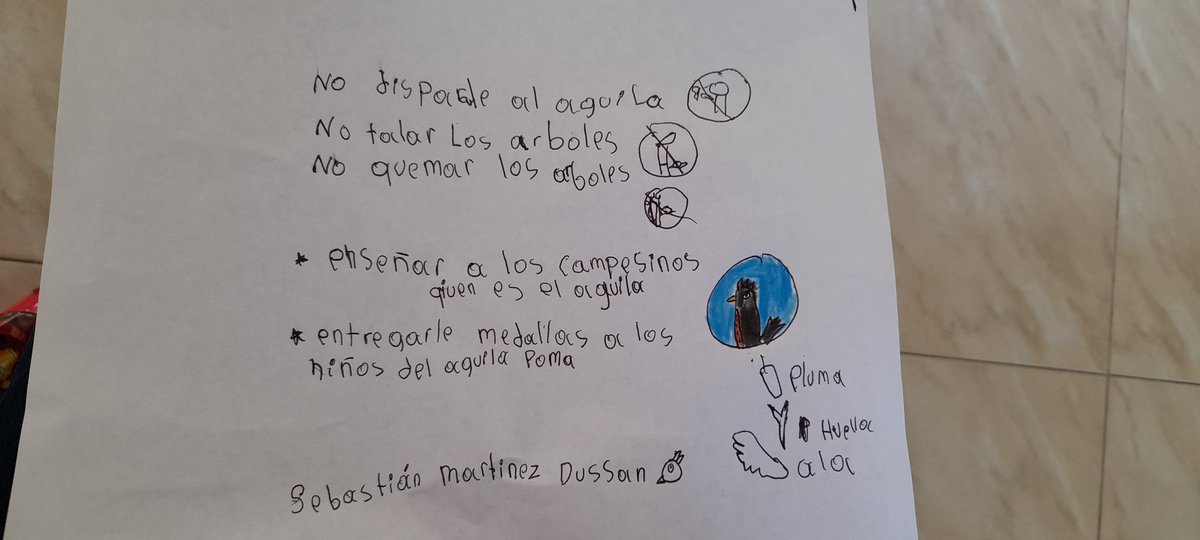 No dispaale al aguila
No talar Los arboles
No quemar los arboles
* enseñar a los campesinos
qiuen es el aguila
* entregarle medallas a los
niños del aguila Poma
Pluma
Huella
ala
Sebastián Martinez Dussan